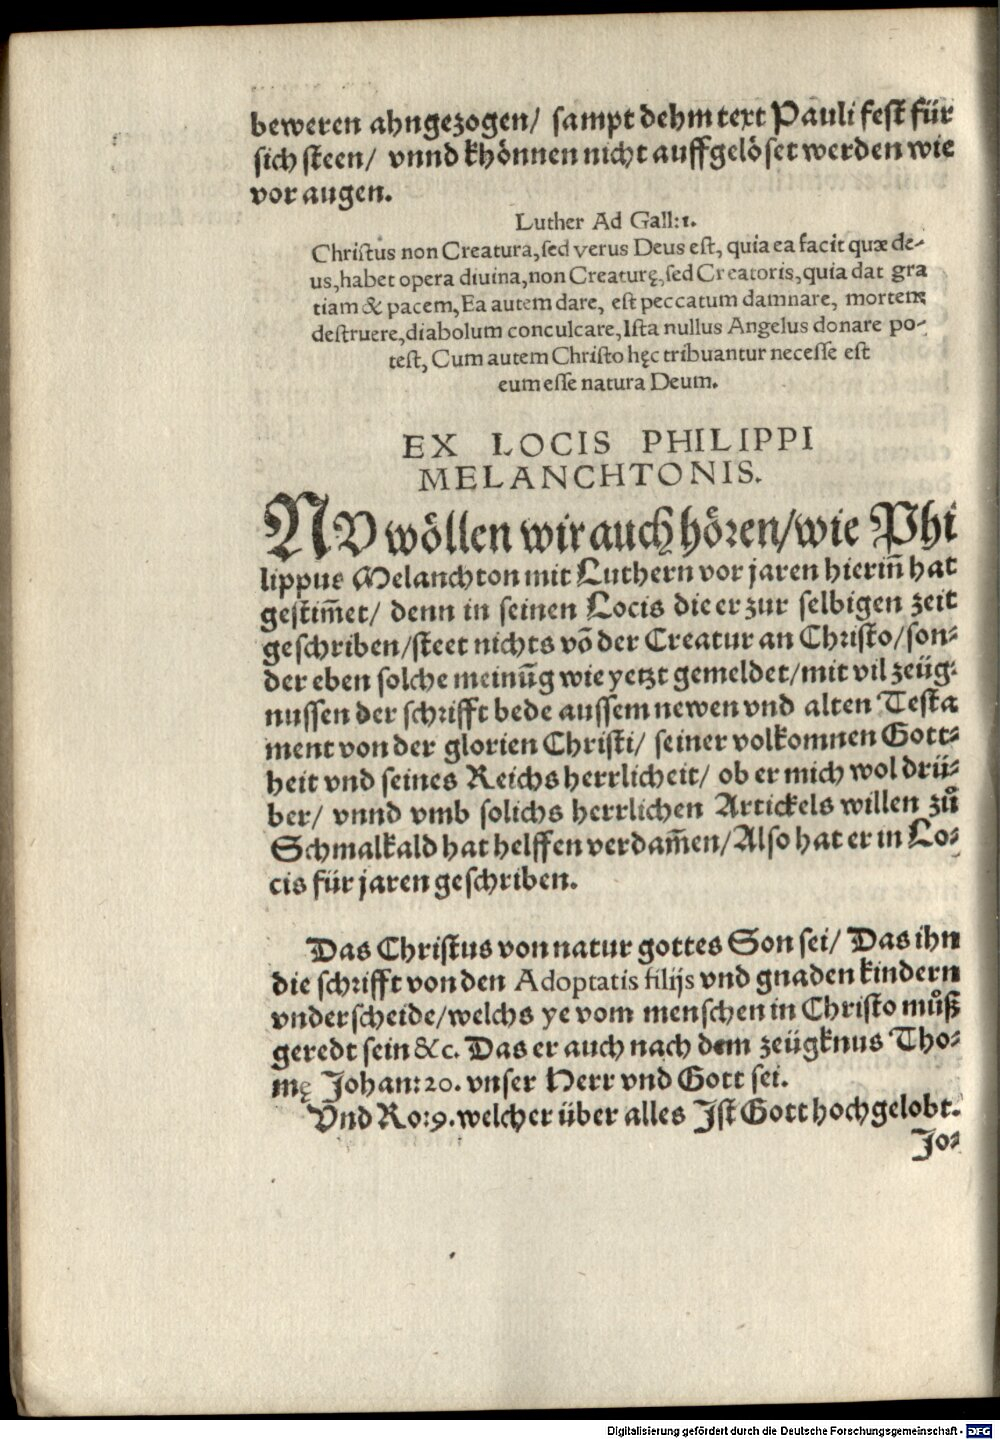 beweren ahngezogen/ sampt dehm text Pauli fest für
sich steen/ vnnd khönnen nicht auffgelöset werden wie
vor augen.
Luther Ad Gall:1.
Christus non Creatura, sed verus Deus est, quia ea facit quæ de-
us, habet opera diuina, non Creaturę, sed Creatoris, quia dat gra
tiam & pacem, Ea autem dare, est peccatum damnare, mortem
destruere, diabolum conculcare, Ista nullus Angelus donare po-
test, Cum autem Christo hęc tribuantur necesse est
eum esse natura Deum.
EX LOCIS PHILIPPI
MELANCHTONIS.
NV wöllen wir auch hören/wie Phi
lippus Melanchton mit Luthern vor jaren hieriñ hat
gestim̃et/ denn in seinen Locis die er zur selbigen zeit
geschriben/steet nichts võ der Creatur an Christo/son-
der eben solche meinũg wie yetzt gemeldet/mit vil zeüg-
nussen der schrifft bede aussem newen vnd alten Testa
ment von der glorien Christi/ seiner volkomnen Gott-
heit vnd seines Reichs herrlicheit/ ob er mich wol drü-
ber/ vnnd vmb solichs herrlichen Artickels willen zů
Schmalkald hat helffen verdam̃en/Also hat er in Lo-
cis für jaren geschriben.
Das Christus von natur gottes Son sei/ Das ihn
die schrifft von den Adoptatis filijs vnd gnaden kindern
vnderscheide/welchs ye vom menschen in Christo můß
geredt sein &c. Das er auch nach dem zeügknus Tho-
mę Johan:20. vnser Herr vnd Gott sei.
Vnd Ro:9. welcher über alles Jst Gott hochgelobt.
Jo-
Digitalisierung gefördert durch die Deutsche Forschungsgemeinschaft - DFG